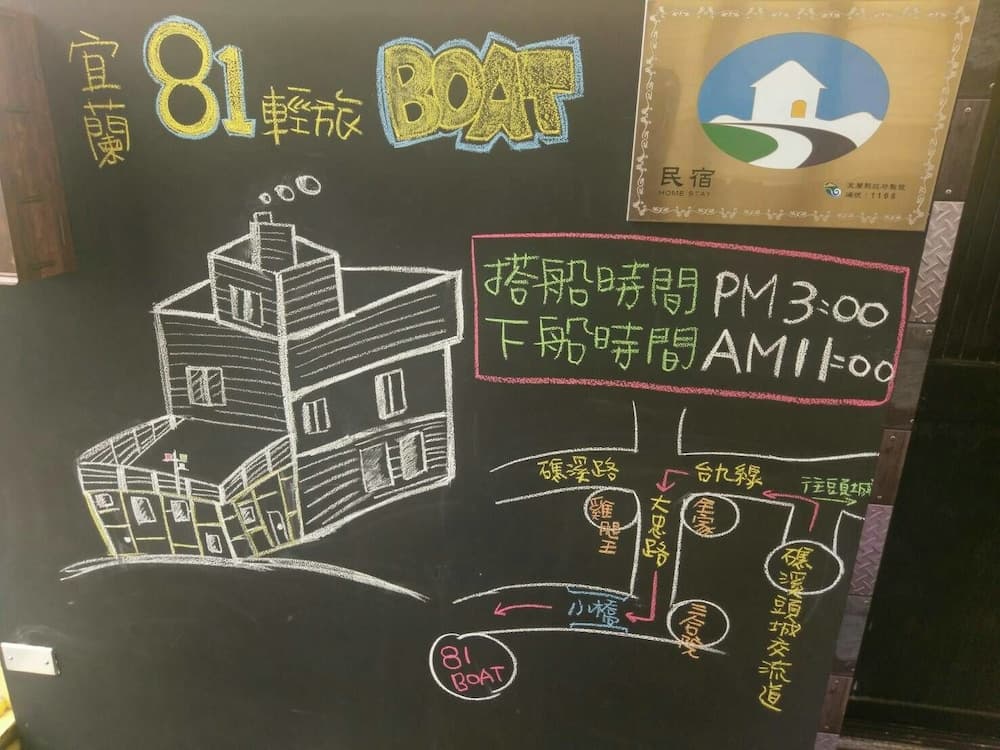 宜蘭
81輕旅
BOAT
民宿
HOME STAY
宜蘭縣政府製發
編號:1196
搭船時間 PM3:00
下船時間 AM11:00
礁溪路
台九線
往頭城
雞腿王
大忠路
全家
礁溪頭城交流道
小橋
三合院
81
BOAT